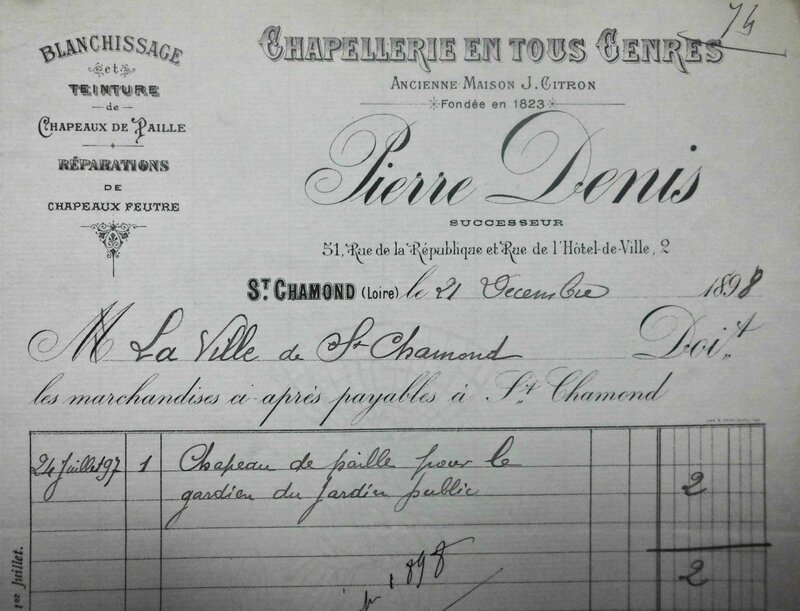 74
BLANCHISSAGE
et
TEINTURE
de
CHAPEAUX DE PAILLE
RÉPARATIONS
DE
CHAPEAUX FEUTRE
CHAPELLERIE EN TOUS GENRES
ANCIENNE MAISON J. CITRON
Fondée en 1823
Pierre Denis
SUCCESSEUR
51, Rue de la République et Rue de l'Hôtel-de-Ville, 2
ST CHAMOND (Loire) le 21 Decembre 1898
M La Ville de St Chamond Doit
les marchandises ci-après payables à St Chamond
24 Juillet 97 1 Chapeau de paille pour le
gardien du Jardin public 2
2
1898
1er Juillet.